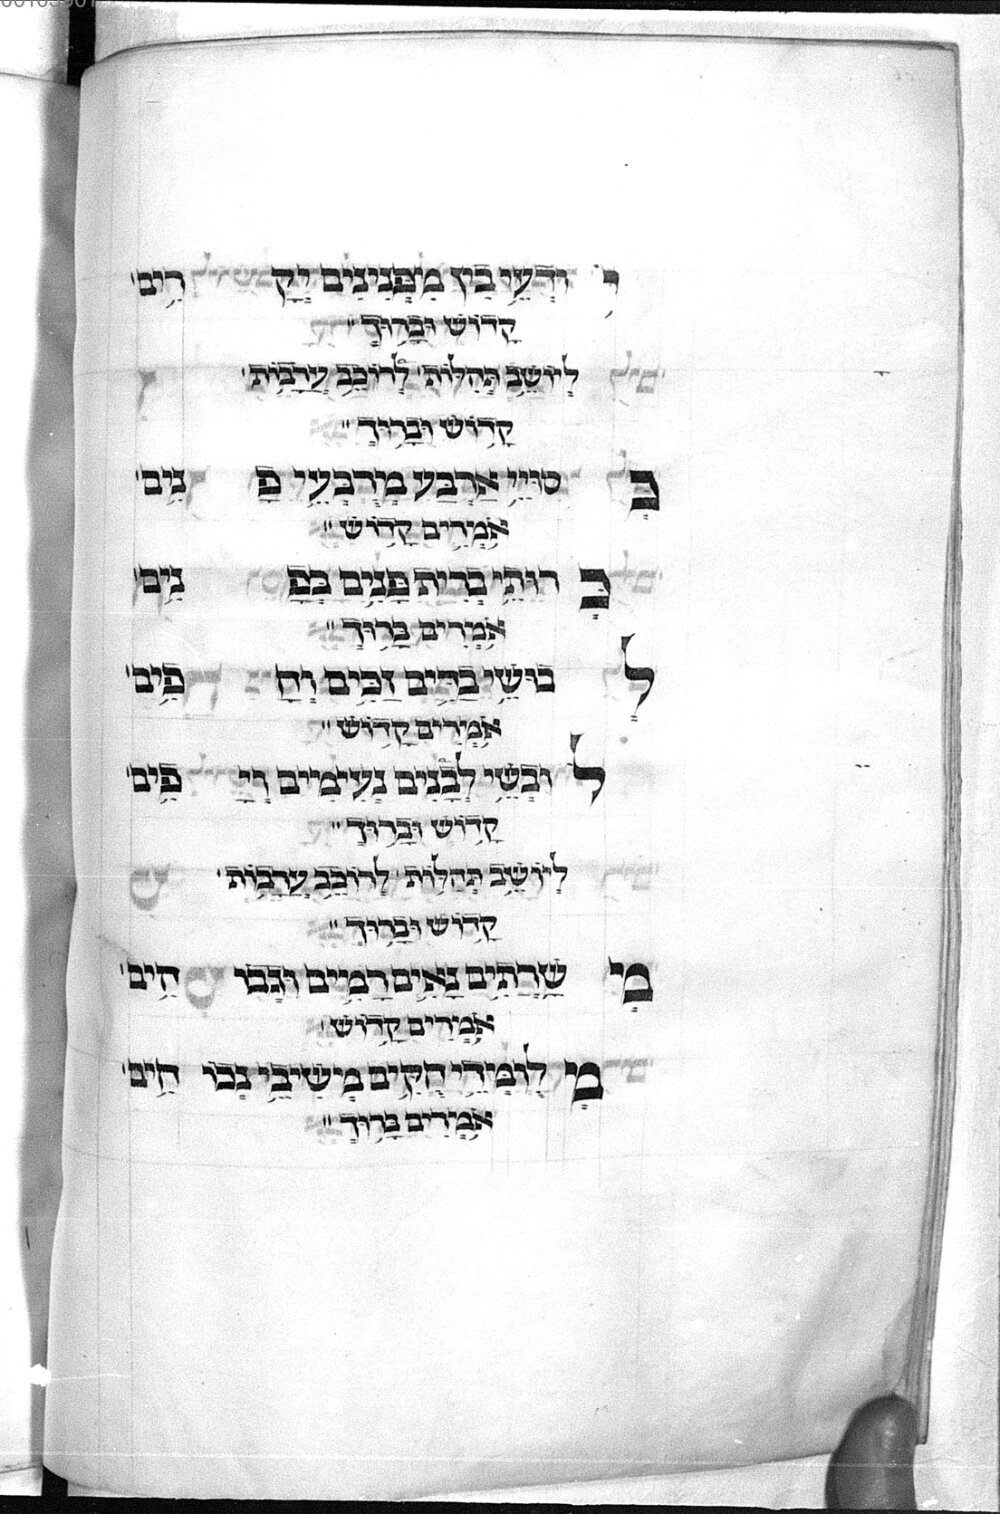 יוֹדְעֵי בִּין מִפְּנִינִים יְקָרִים׳
קָדוֹשׁ וּבָרוּךְ״
לְיוֹשֵׁב תְּהִלּוֹת׳ לְרוֹכֵב עֲרָבוֹת׳
קָדוֹשׁ וּבָרוּךְ״
כְּסוּיֵי אַרְבַּע מְרֻבְּעֵי פָנִים׳
אֹמְרִים קָדוֹשׁ״
כְּרוּתֵי בְרִית פָּנִים בְּפָנִים׳
אֹמְרִים בָּרוּךְ״
לְבוּשֵׁי בַדִּים זַכִּים וְחַפִּים׳
אֹמְרִים קָדוֹשׁ״
לוֹבְשֵׁי לְבָנִים נְעִימִיים וְיָפִים׳
קָדוֹשׁ וּבָרוּךְ״
לְיוֹשֵׁב תְּהִלּוֹת׳ לְרוֹכֵב עֲרָבוֹת׳
קָדוֹשׁ וּבָרוּךְ״
מְשָׁרֲתִים נָאִים רָמִיים וּגְבוֹהִים׳
אֹמְרִים קָדוֹשׁ׳
מְלוּמְּדֵי חֻקִּים מְשִׁיבֵי נְכוֹחִים׳
אֹמְרִים בָּרוּךְ״